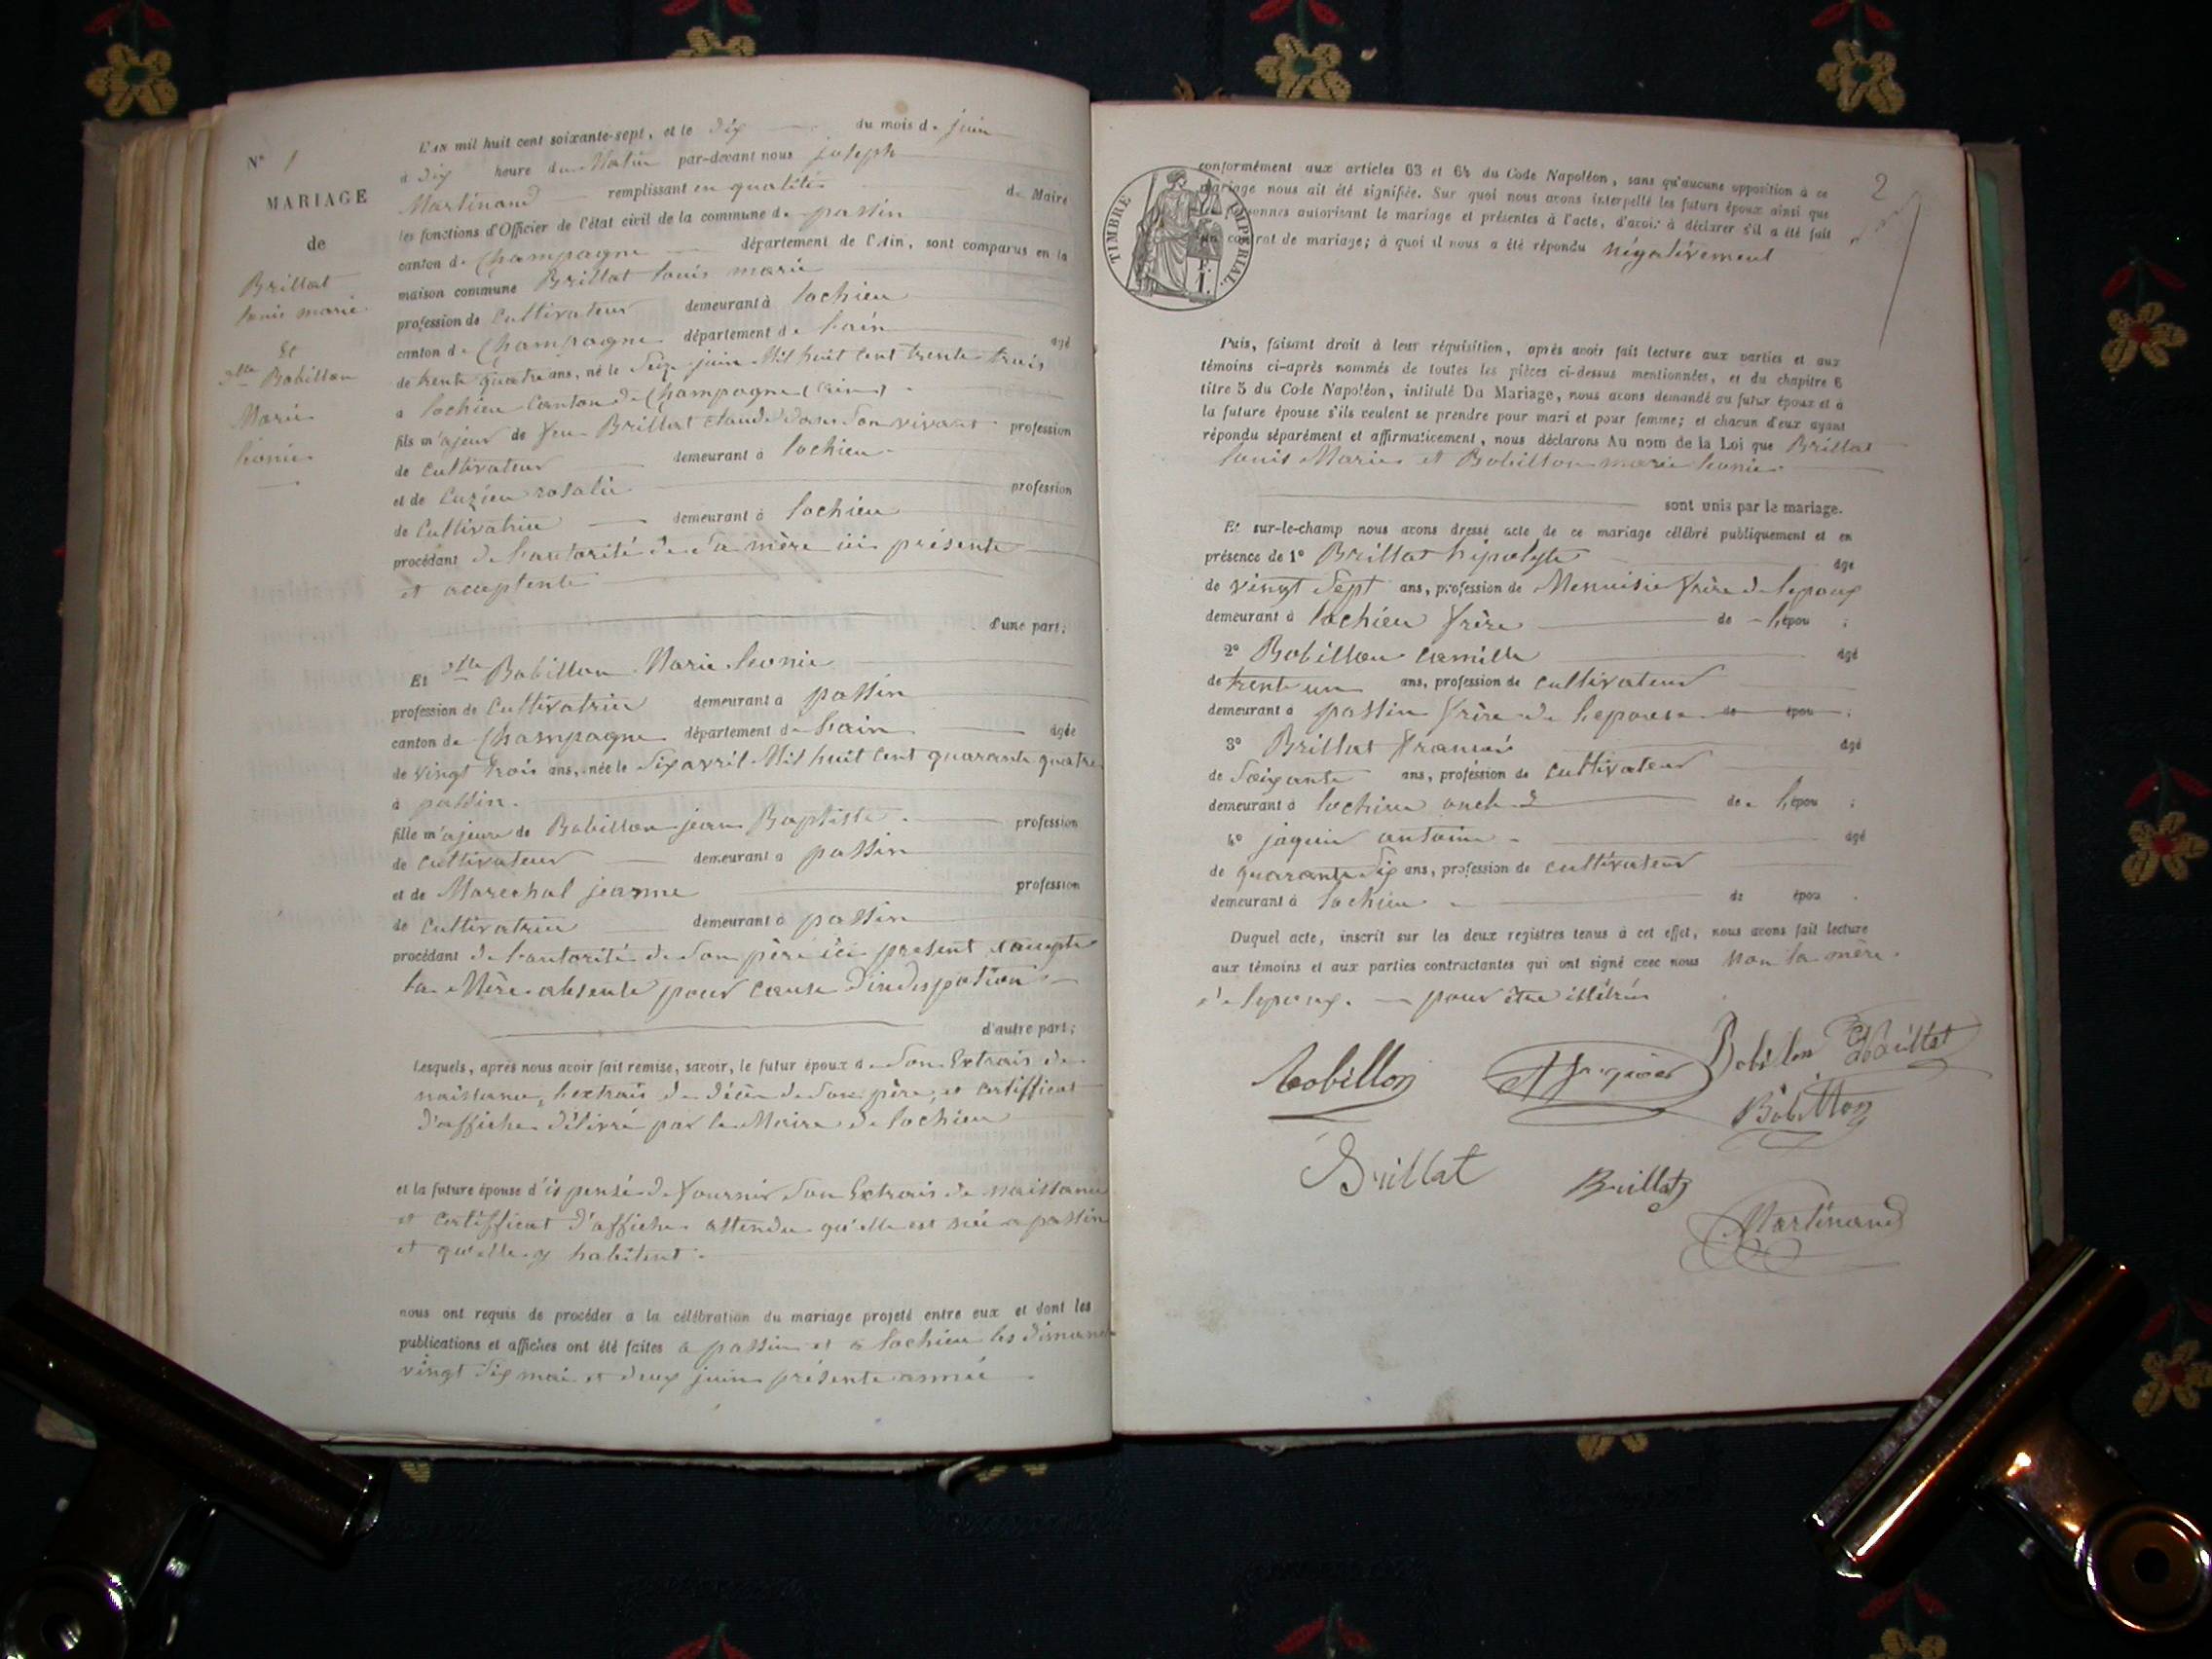 N° 1
MARIAGE
de
Brillat
louis marie
Et
dlle Bobillon
Marie
leonie
L'an mil huit cent soixante-sept, et le dix du mois de juin
à dix heure du Matin par-devant nous joseph
Martinand remplissant en qualité de Maire
les fonctions d'Officier de l'état civil de la commune de passin
canton de Champagne département de l'Ain, sont comparus en la
maison commune Brillat louis marie
profession de cultivateur demeurant à lochieu
canton de Champagne département de lain âgé
de trente quatre ans, né le juin Mil huit cent trente trois
à lochieu Canton de Champagne (ain)
fils majeur de feu Brillat claude dans son vivant profession
de cultivateur demeurant à lochieu
et de Luzieu rosalie profession
de Cultivatrice demeurant à lochieu
procédant de lautorité de sa mère ici présente
et acceptente
d'une part;
Et dlle Bobillon Marie leonie
profession de cultivatrice demeurant à passin
canton de Champagne département de lain âgée
de vingt trois ans, née le six avril Mil huit cent quarante quatre
à passin.
fille majeure de Bobillon jean Baptiste profession
de cultivateur demeurant à passin
et de Marechal jeanne profession
de cultivatrice demeurant à passin
procédant de lautorité de son père ici present et accepte
la Mère absente pour cause d'indispotion
d'autre part;
Lesquels, après nous avoir fait remise, savoir, le futur époux de son Extrais de
naissance, lextrais de décès de son père, et certifficat
d'affiches délivré par le Maire de lochieu
et la future épouse dispensé de fournir son Extrais de naissance
et certifficat d'affiches attendu qu'elle est née a passin
et qu'elle y habitent
nous ont requis de procéder à la célébration du mariage projeté entre eux et dont les
publications et affiches ont été faites à passin et a lochieu les dimanc
vingt six mai et deux juin présente année
2
TIMBRE IMPERIAL
conformément aux articles 63 et 64 du Code Napoléon, sans qu'aucune opposition à ce
mariage nous ait été signifiée. Sur quoi nous avons interpellé les futurs époux ainsi que
personnes autorisant le mariage et présentes à l'acte, d'avoir à déclarer s'il a été fait
un contrat de mariage; à quoi il nous a été répondu négativement
Puis, faisant droit à leur réquisition, après avoir fait lecture aux parties et aux
témoins ci-après nommés de toutes les pièces ci-dessus mentionnées, et du chapitre 6
titre 5 du Code Napoléon, intitulé Du Mariage, nous avons demandé au futur époux et à
la future épouse s'ils veulent se prendre pour mari et pour femme; et chacun d'eux ayant
répondu séparément et affirmativement, nous déclarons Au nom de la Loi que Brillat
louis Marie et Bobillon marie leonie
sont unis par le mariage.
Et sur-le-champ nous avons dressé acte de ce mariage célébré publiquement et en
présence de 1° Brillat hipolyte âgé
de vingt sept ans, profession de Menuisie frère de lepoux
demeurant à lochieu frère de l'épou ;
2° Bobillon camille âgé
de trente un ans, profession de cultivateur
demeurant à passin frère de lepouse de épou ;
3° Brillat francois âgé
de Soixante ans, profession de cultivateur
demeurant à lochieu oncle de l'épou ;
4° jaquier antoine âgé
de quarante six ans, profession de cultivateur
demeurant à lochieu de épou .
Duquel acte, inscrit sur les deux registres tenus à cet effet, nous avons fait lecture
aux témoins et aux parties contractantes qui ont signé avec nous non la mère
de lepoux. pour être illétrée
Bobillon Bobillon
Bobillon
Brillat Brillat
Martinand